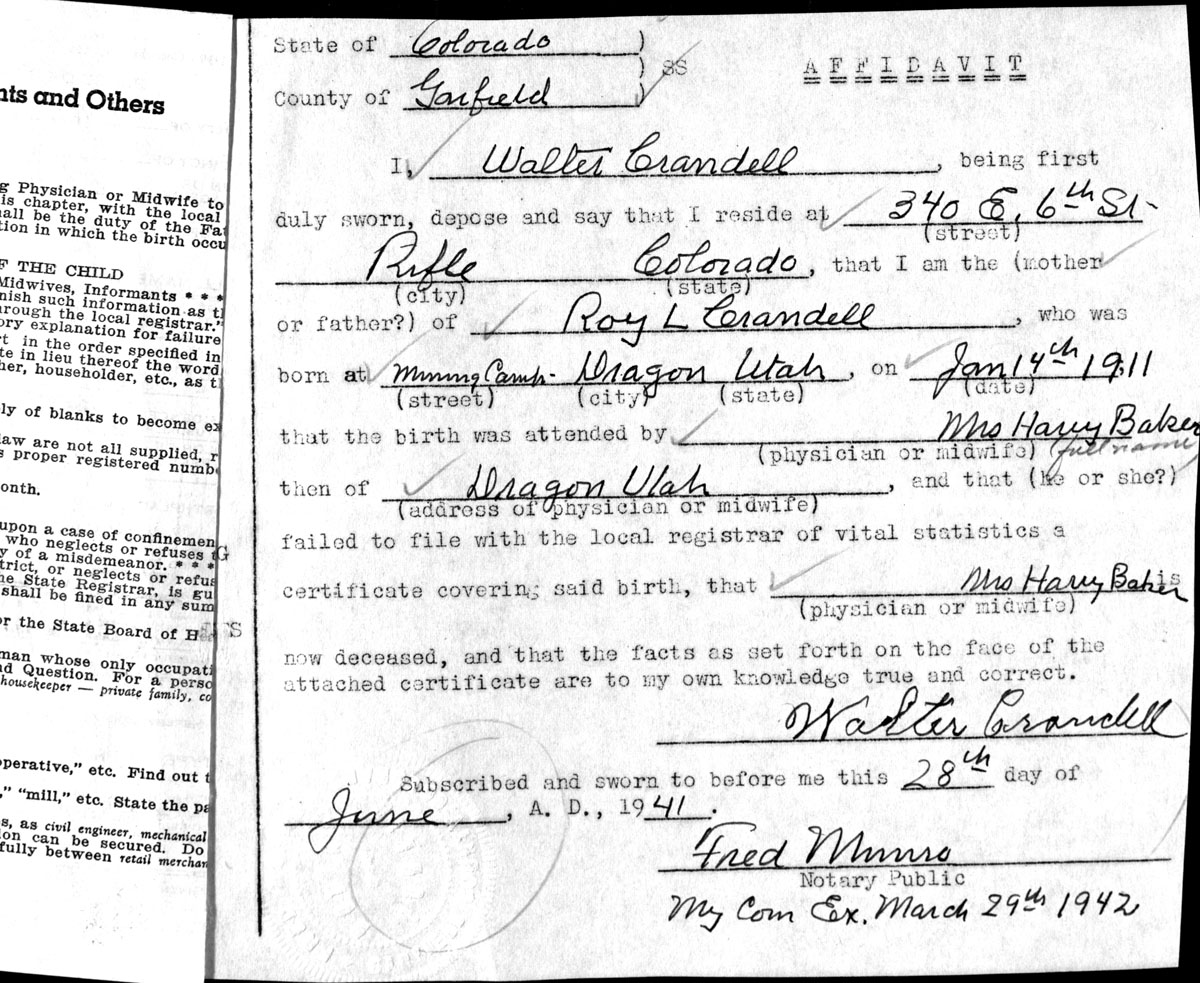 nts and Others
g Physician or Midwife to
is chapter, with the local
all be the duty of the Fat
tion in which the birth occu
F THE CHILD
Midwives, Informants * * *
nish such information as th
hrough the local registrar."
ory explanation for failure
rt in the order specified in
te in lieu thereof the word
her, householder, etc., as t
ly of blanks to become ex
law are not all supplied, r
s proper registered numbe
onth.
upon a case of confinemen
who neglects or refuses t
y of a misdemeanor. * * *
trict, or neglects or refus
he State Registrar, is gu
shall be fined in any sum
or the State Board of H
man whose only occupati
nd Question. For a perso
housekeeper — private family, co
perative," etc. Find out t
," "mill," etc. State the pa
s, as civil engineer, mechanical
on can be secured. Do
fully between retail merchan
State of Colorado )
) SS
County of Garfield )
AFFIDAVIT
I, Walter Crandell, being first
duly sworn, depose and say that I reside at 340 E. 6th St-
(street)
Rifle Colorado, that I am the (mother
(city) (state)
or father?) of Roy L Crandell, who was
born at Mining Camp- Dragon Utah, on Jan 14th 1911
(street) (city) (state) (date)
that the birth was attended by Mrs Harry Baker
(physician or midwife) (full name)
then of Dragon Utah, and that (he or she?)
(address of physician or midwife)
failed to file with the local registrar of vital statistics a
certificate covering said birth, that Mrs Harry Baker is
(physician or midwife)
now deceased, and that the facts as set forth on the face of the
attached certificate are to my own knowledge true and correct.
Walter Crandell
Subscribed and sworn to before me this 28th day of
June, A. D., 1941.
Fred Munro
Notary Public
My Com Ex. March 29th 1942